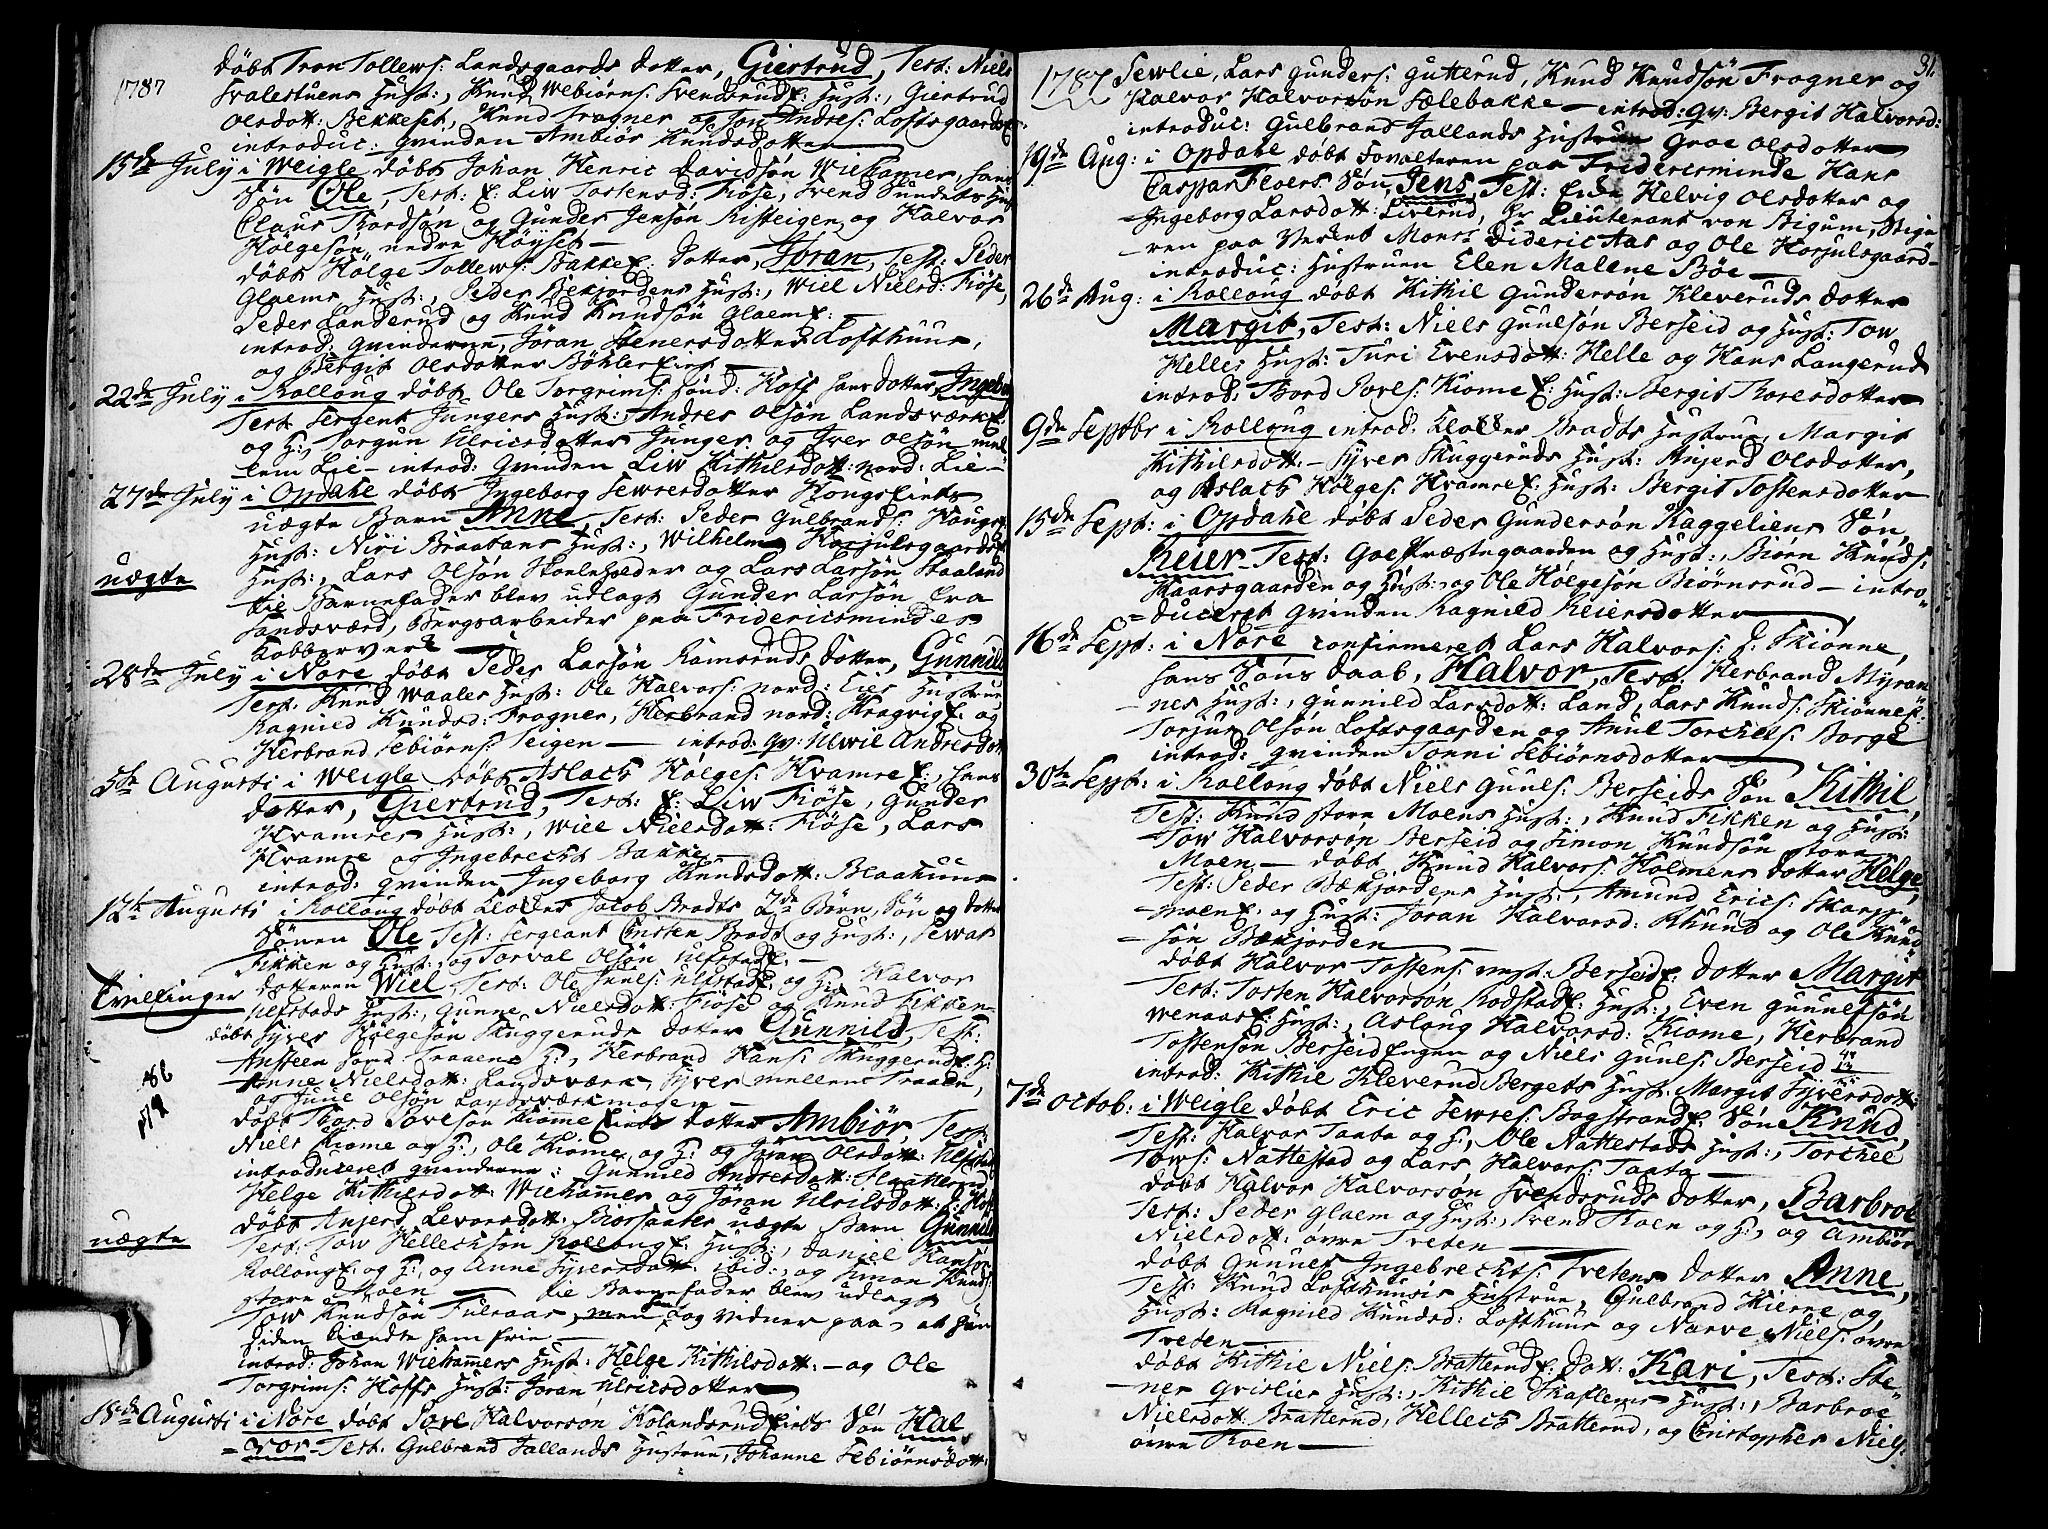 1787
døbt Tron Tollews: Landsgaards dotter, Giertrud, Test: Niels
Svalestuens Hust:, Knud Webiørns: Svendsrud Hust:, Giertrud
Olsdott: Bekkeset, Knud Frogner og Jon Andres: Loftsgaarden
introduc: Qvinden Ambiør Knudsdotter
15de July i Weigle døbt Johan Henric Davidsøn Wiehamer, hans
Søn Ole, Test: Liw Tostensd: Fiøse, Svend Sundets Hust
Claus Thordsøn og Gunder Jensøn Risteigen og Halvor
Hølgesøn nedre Høyset —
døbt Hølge Tollews: Bakke dotter, Joran, Test: Peder
Glaems Hust:, Peder Bekjordens Hust:, Wiel Nielsd: Fiøse,
Peder Landerud og Knud Knudsøn Glaem
introd: Qvinderne, Jøran Stenersdotter Lofthuus,
og Bergit Olsdotter Bøhler
22de July i Rollong døbt Ole Torgrims: sønd: Hoff hans dotter, Ingebor
Test. Sergent Jungers Hust:, Andres Olsøn Landsværk
og H: Torgun Ulricsdotter Junger og Iver Olsøn mel
lem Lie — introd: Qvinden Liw Kithilsdott: nord: Lie —
27de July i Opdahl døbt Ingeborg Sewersdotter Kongs
uægte Barn Anne, Test: Peder Gulbrands: Kongs
Hust: Niri Braabans Hust:, Wilhelm Horjulsgaards
uægte
Hust:, Lars Olsøn Skoleholder og Lars Larsøn Staaland
til Barnefader blev udlagt Gunder Larsøn fra
Sandsværd, Bergsarbeider paa Fridericsmindes
Kobberverk
28de July i Nore døbt Peder Larsøn Ramsruds dotter, Gunnild
Test: Knud Waales Hust: Ole Halvors: nord: Eies Hustrue
Ragnild Knudsd: Frogner, Herbrand nord: Kragvig og
Herbrand Sebiørns: Teigen — introd: Qv: Ulwil Andresdott
5te Augusti i Weigle døbt Aslach Hølges: Kvamre, hans
dotter, Giertrud, Test: Liw Fiøse, Gunder
Kvamres Hust:, Wiel Nielsdott: Fiøse, Lars
Kvamre og Ingebrecht Bakke —
introd: Qvinden Ingeborg Knudsdott: Blaahuus
12te Augusti i Rollong døbt Jacob Bradts 2de Børn, Søn og dotter
Sønen Ole Test: Sergeant Cristen Bradt og Hust:, Sewar
Fikken og Hust: og Torval Olsøn Ulfstad —
Tvillinger
dotteren Wiel Test: Ole Juuls: Ulfstad og H: Halvor
Ulfstads Hust:, Gunne Nielsdott: Fiøse og Knud Fikken —
døbt Syver Hølgesøn Skuggeruds dotter Gunnild, Test:
Ansteen sønd Traaens H:, Herbrand Hans: Skuggerud H:
Anne Nielsdott: Landsværk, Syver mellem Traaen,
og June Olsøn Landsværkmoen —
døbt Thord Povelsøn Kiomme dotter Ambiør, Test
Niels Kiome og H:, Ole Kiome og H: og Joran Olsdott: Ulfstad
introduceret qvinderne: Gunnild Andresdott: Slatterud
Helge Kithilsdott: Wiehammer og Jøran Ulricsdott: S: Hof
døbt Anjerd Levorsdott: Biørsaater uægte Barn Gunnild
uægte
Test: Tow Hellechsøn Rollong Hust:, Daniel Hansøn
Rollong og H:, og Anne Syversdott: ibid:, og Simon Knuds:
store Moen — til Barnefader blev udlagt
Tow Knudsøn Fulsaas, men og vidner paa, at hun
siden kiændte ham frie —
introd: Johan Wiehammers Hust: Helge Kithilsdott: — og Ole
Torgrims: Hoffs Hust: Joran Ulricsdotter
18de Augusti i Nore døbt Povl Halvorsøn Kolandsrud Søn Hal
= vor — Test: Gulbrand Jallands Hustrue, Johanne Sebiørnsdott:
31.
1787 Sewlie, Lars Gunders: Gutterud, Knud Knudsøn Frogner og
Halvor Halvorsøn Sælebakke — introd: Qv: Bergit Halvorsd:
introduc: Gulbrand Jallands Hustrue Groe Olsdotter
19de Aug: i Opdahl døbt Forvalteren paa Fridericsminde Hans
Caspar Floers Søn, Jens, Test: Helvig Olsdotter og
Ingeborg Larsdott: Liverud, Hr Lieutenant von Bigum, Stige
ren paa Verket Monsr Dideric Aas og Ole Horjulsgaard —
introduc: Hustruen Elen Malene Bøe —
26de Aug: i Rollong døbt Kithil Gundersøn Kleveruds dotter
Margit, Test: Niels Guulsøn Berseid og Hust: Tow
Helles Hust: Turi Evensdott: Helle og Hans Langerud
introd: Thord Povels: Kiome Hust: Bergit Thoresdotter
9de Septbr i Rollong introd. Bradts Hustrue, Margit
Kithilsdott: — Syver Skuggeruds Hust: Anjerd Olsdotter,
og Aslach Hølges: Kvamre Hust: Bergit Tostensdotter
15de Sept: i Opdahl døbt Peder Gundersøn Kaggeliens Søn,
Reier — Test: Goe Præstegaarden og Hust:, Biørn Knuds:
Kaarsgaarden og Hust: og Ole Hølgesøn Biørnsrud — intro
= duceret Qvinden Ragnild Reiersdotter
16de Sept: i Nore confirmeret Lars Halvors: S: Skiønne,
hans Søns daab, Halvor, Test: Herbrand Myran
nes Hust:, Gunnild Larsdott: Land, Lars Knuds: Skiønne:
Torjus Olsøn Loftsgaarden og Anul Torchels: Borge
introd: qvinden Tonni Sebiørnsdotter
30te Sept: i Rollong døbt Niels Guuls: Berseids Søn Kithil,
Test: Knud store Moens Hust:, Knud Fikken og Hust:
Tow Halvorsøn Berseid og Simon Knudsøn store
Moen — døbt Knud Halvors: Holmens dotter Helge,
Test: Peder Bækjordens Hust:, Amund Erics: Skarp
moen og Hust: Joran Halvorsd: Rhuud og Ole Knud
= søn Bækjorden
døbt Halvor Tostens: vest: Berseid dotter Margit
Test: Tosten Halvorsøn Rodstad Hust:, Even Gunnulfsøn
Wenaas Hust:, Aslaug Halvorsd: Kiome, Herbrand
Tostensøn Berseid Engen og Niels Guuls: Berseid
introd: Kithil Kleverud Bergets Hust: Margit Syversdott:
7de Octob: i Weigle døbt Eric Sewres: Bogstrand Søn Knud,
Test: Halvor Taata og H:, Ole Nattestads Hust:, Torchel
Tows: Nattestad og Lars Halvors: Taata —
døbt Halvor Halvorsøn Svendsruds dotter, Barbroe
Test: Peder Glaem og Hust:, Svend Thoen og H:, og Ambiør
Nielsdott: øvre Treten —
døbt Gunner Ingebrechts: Tretens dotter Anne,
Test: Knud Lofthuusis Hustrue, Gulbrand Kierne og
Hust: Ragnild Knudsd: Lofthuus og Narve Niels: øvre
Treten —
døbt Kithil Niels: Bratterud Dott: Kari, Test: Ste
ner Grislies Hust:, Kithil Skaflems Hust:, Barbroe
Nielsdott: Bratterud, Hellech Bratterud, og Cristopher Niels:
øvre Thoen —